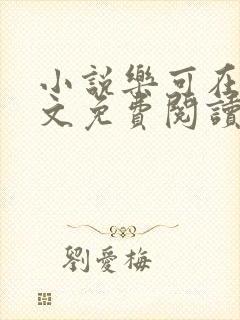 小說樂可在
文免費閱讀
劉愛梅